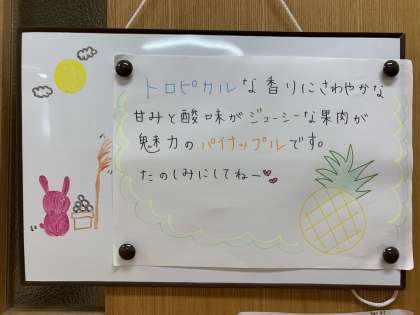 トロピカルな香りにさわやかな
甘みと酸味がジューシーな果肉が
魅力のパイナップルです。
たのしみにしてねー